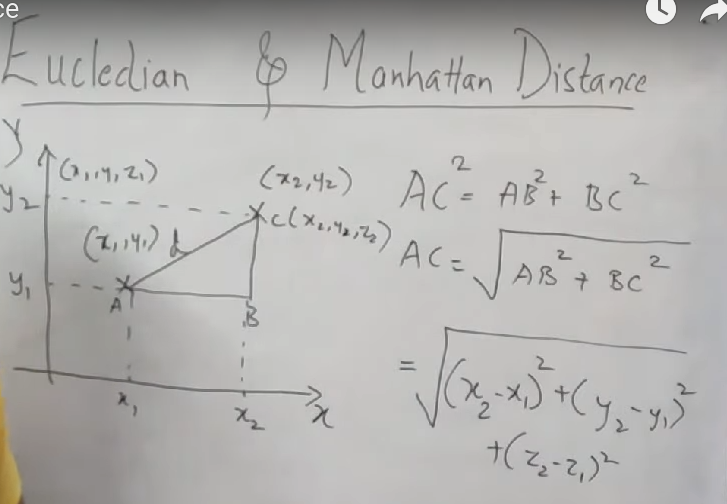 ce
Eucledian & Manhattan Distance
y
(x₁,y₁,z₁)
y₂
(x₂,y₂)
C(x₂,y₂,z₂)
(x₁,y₁) d
y₁
A
B
x₁
x₂
x
AC² = AB² + BC²
AC = √(AB² + BC²)
= √((x₂-x₁)² + (y₂-y₁)²
+(z₂-z₁)²